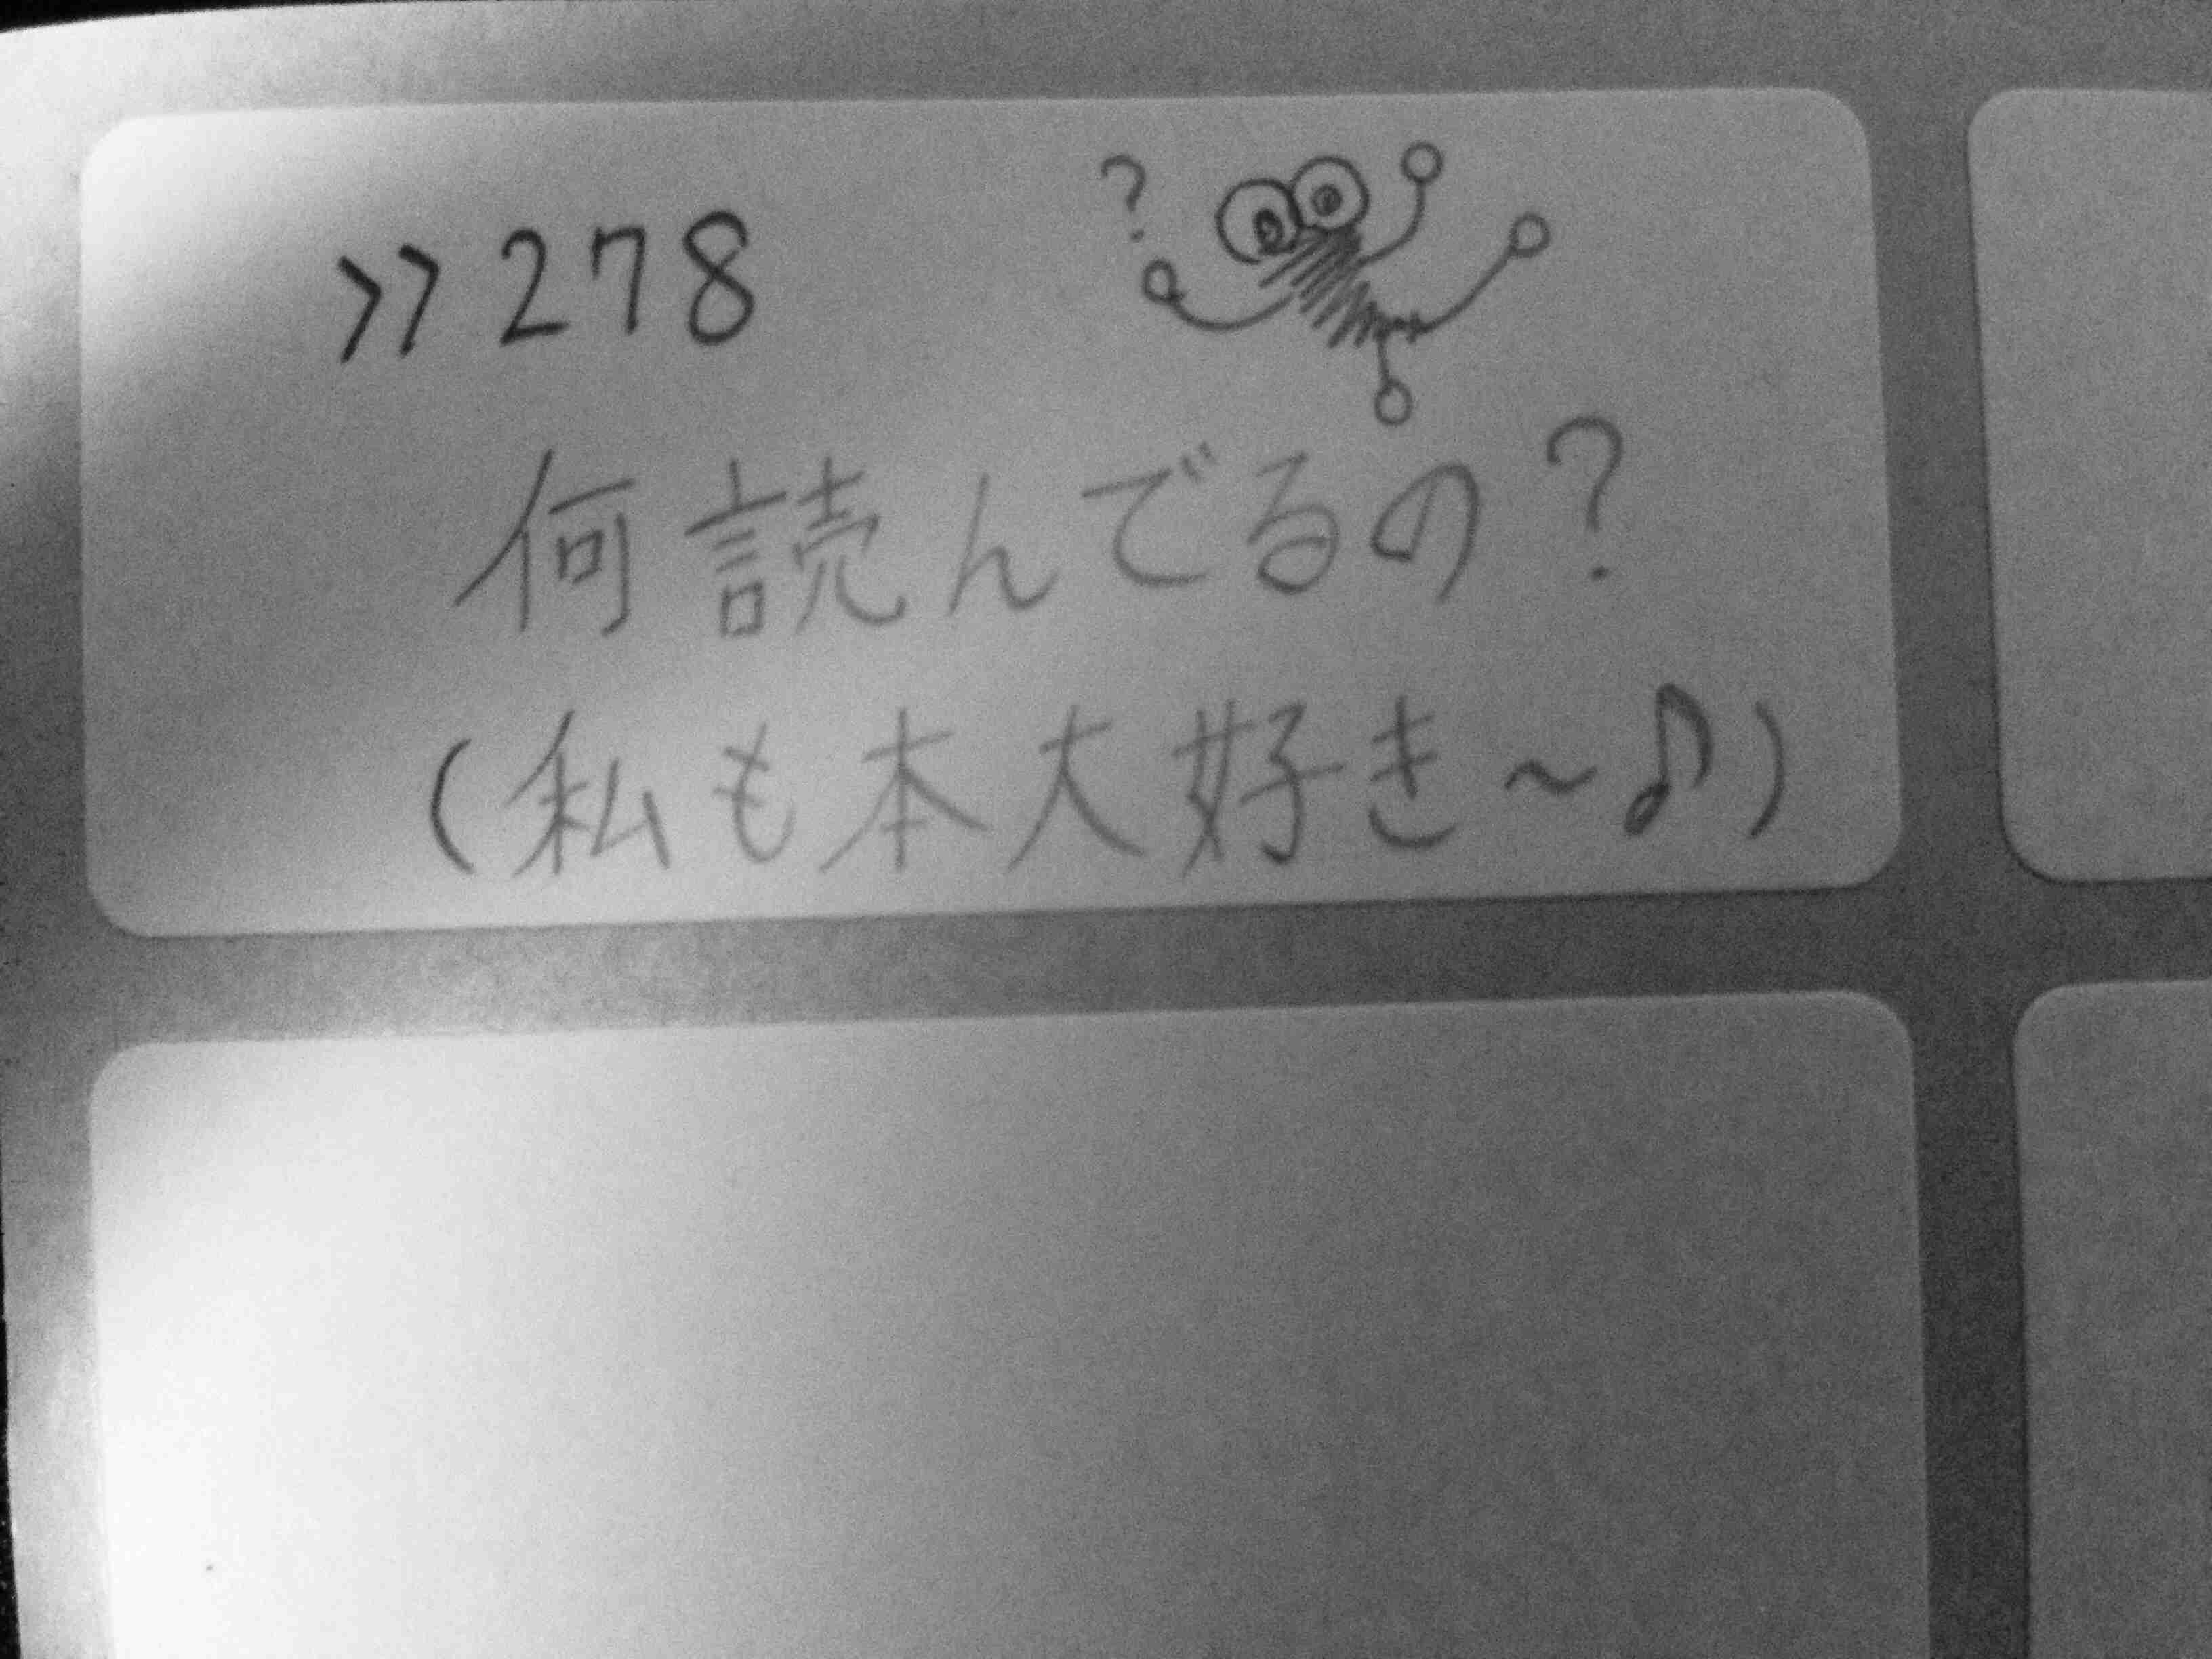 >>278
?
何読んでるの?
(私も本大好き~♪)